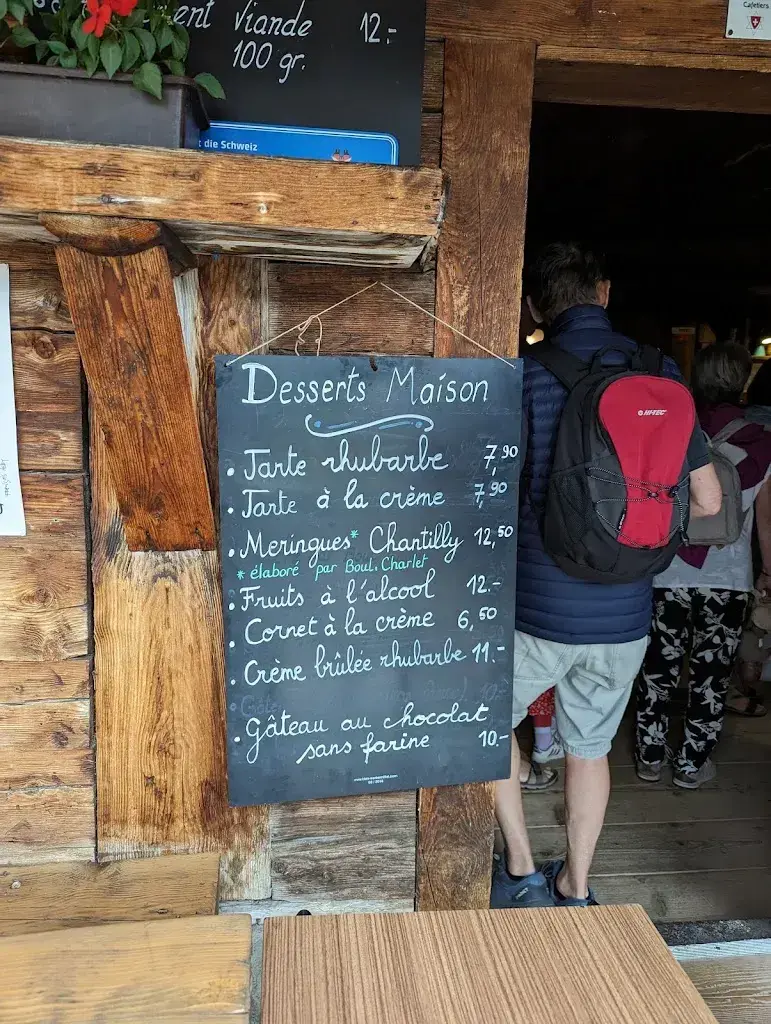 ent Viande 12.-
100 gr.
t die Schweiz
Cafetiers
Desserts Maison
• Tarte rhubarbe 7,90
• Tarte à la crème 7,90
• Meringues* Chantilly 12,50
* élaboré par Boul. Charlet
• Fruits à l'alcool 12.-
• Cornet à la crème 6,50
• Crème brûlée rhubarbe 11.-
• Gâteau au chocolat
sans farine 10.-
HI-TEC